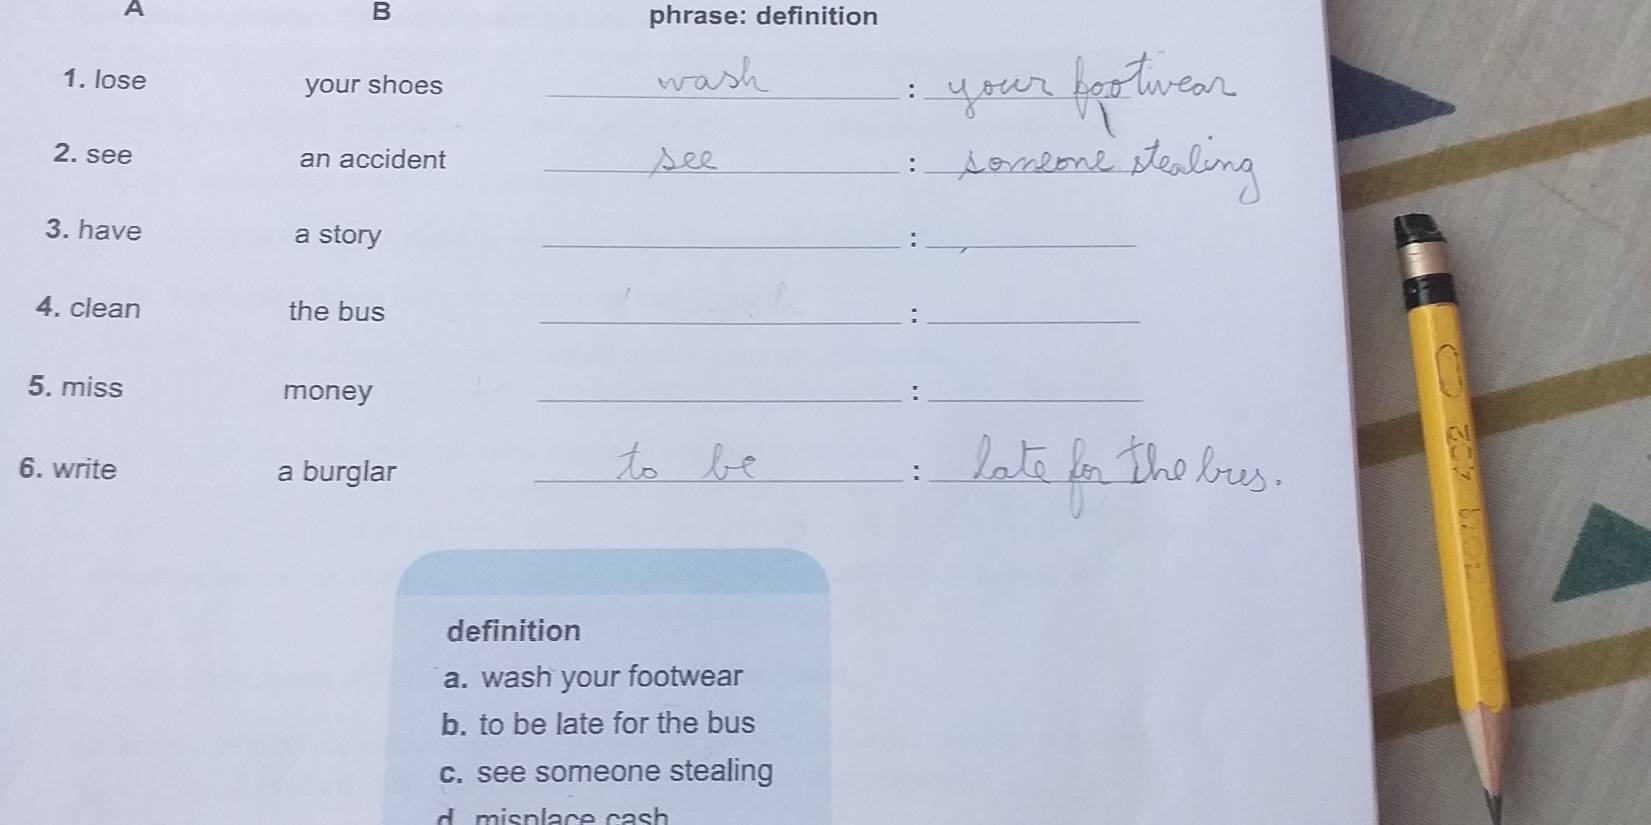 A B phrase: definition
1. lose your shoes wash : your footwear
2. see an accident see : someone stealing
3. have a story :
4. clean the bus :
5. miss money :
6. write a burglar to be : late for the bus.
definition
a. wash your footwear
b. to be late for the bus
c. see someone stealing
d misplace cash